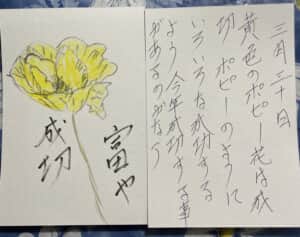 三月二十日
黄色のポピー花は成
功 ポピーのように
いろいろな成功する
よう今年成功する事
があるのかなう
富や
成功